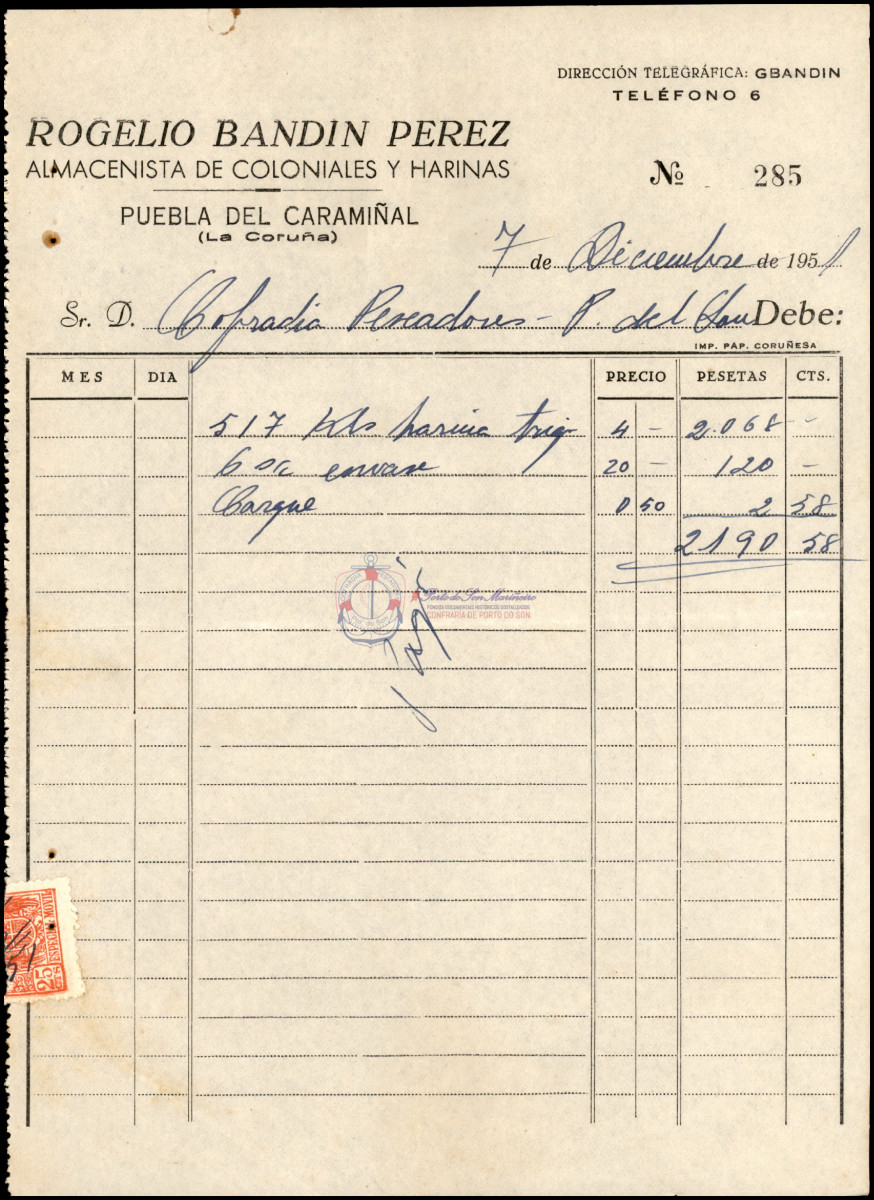 DIRECCIÓN TELEGRÁFICA: GBANDIN
TELÉFONO 6
ROGELIO BANDIN PEREZ
ALMACENISTA DE COLONIALES Y HARINAS
Nº 285
PUEBLA DEL CARAMIÑAL
(La Coruña)
7 de Diciembre de 1951
Sr. D. Cofradia Pescadores - P. del Son Debe:
IMP. PAP. CORUÑESA
MES DIA PRECIO PESETAS CTS.
517 Kls harina trigo 4 - 2.068 -
6 s/c envase 20 - 120 -
Cargue 0 50 2 58
2190 58
Porto do Son Mariñeiro
CONFRARÍA DE PORTO DO SON
25 CTS
ESPECIAL MOVIL